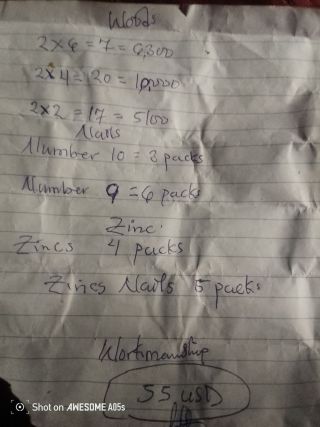 Woods
2x6 = 7 = 6,300
2x4 = 120 = 10,000
2x2 = 17 = 5100
Nails
Number 10 = 3 packs
Number 9 = 6 packs
Zinc
Zincs 4 packs
Zincs Nails 5 packs
Workmanship
55 USD
Shot on AWESOME A05s